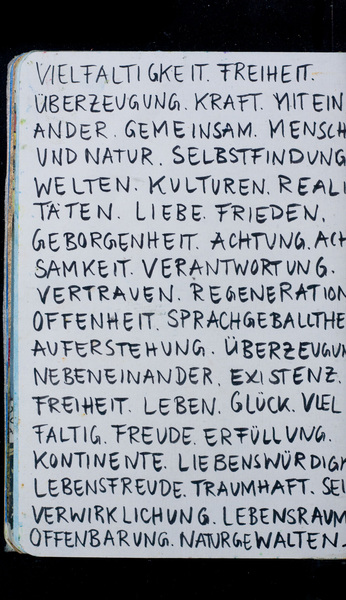 VIELFALTIGKEIT. FREIHEIT.
ÜBERZEUGUNG. KRAFT. MITEIN
ANDER. GEMEINSAM. MENSCH
UND NATUR. SELBSTFINDUNG
WELTEN. KULTUREN. REALI
TÄTEN. LIEBE. FRIEDEN.
GEBORGENHEIT. ACHTUNG. ACH
SAMKEIT. VERANTWORTUNG.
VERTRAUEN. REGENERATION
OFFENHEIT. SPRACHGEBALLTHE
AUFERSTEHUNG. ÜBERZEUGUN
NEBENEINANDER. EXISTENZ.
FREIHEIT. LEBEN. GLÜCK. VIEL
FALTIG. FREUDE. ERFÜLLUNG.
KONTINENTE. LIEBENSWÜRDIGK
LEBENSFREUDE. TRAUMHAFT. SEL
VERWIRKLICHUNG. LEBENSRAUM
OFFENBARUNG. NATURGEWALTEN.